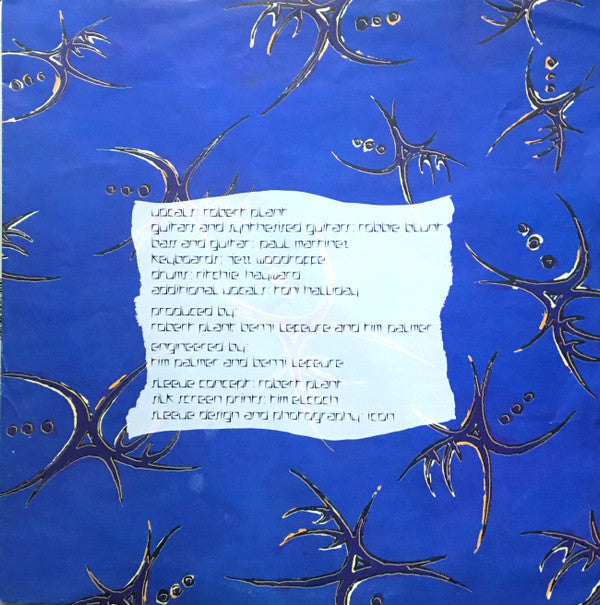 vocals: robert plant
guitars and synthesised guitars: robbie blunt
bass and guitar: paul martinez
keyboards: jezz woodroffe
drums: ritchie hayward
additional vocals: toni halliday
produced by:
robert plant benji lefevre and tim palmer
engineered by:
tim palmer and benji lefevre
sleeve concept: robert plant
silk screen prints: kim elcoch
sleeve design and photography: icon